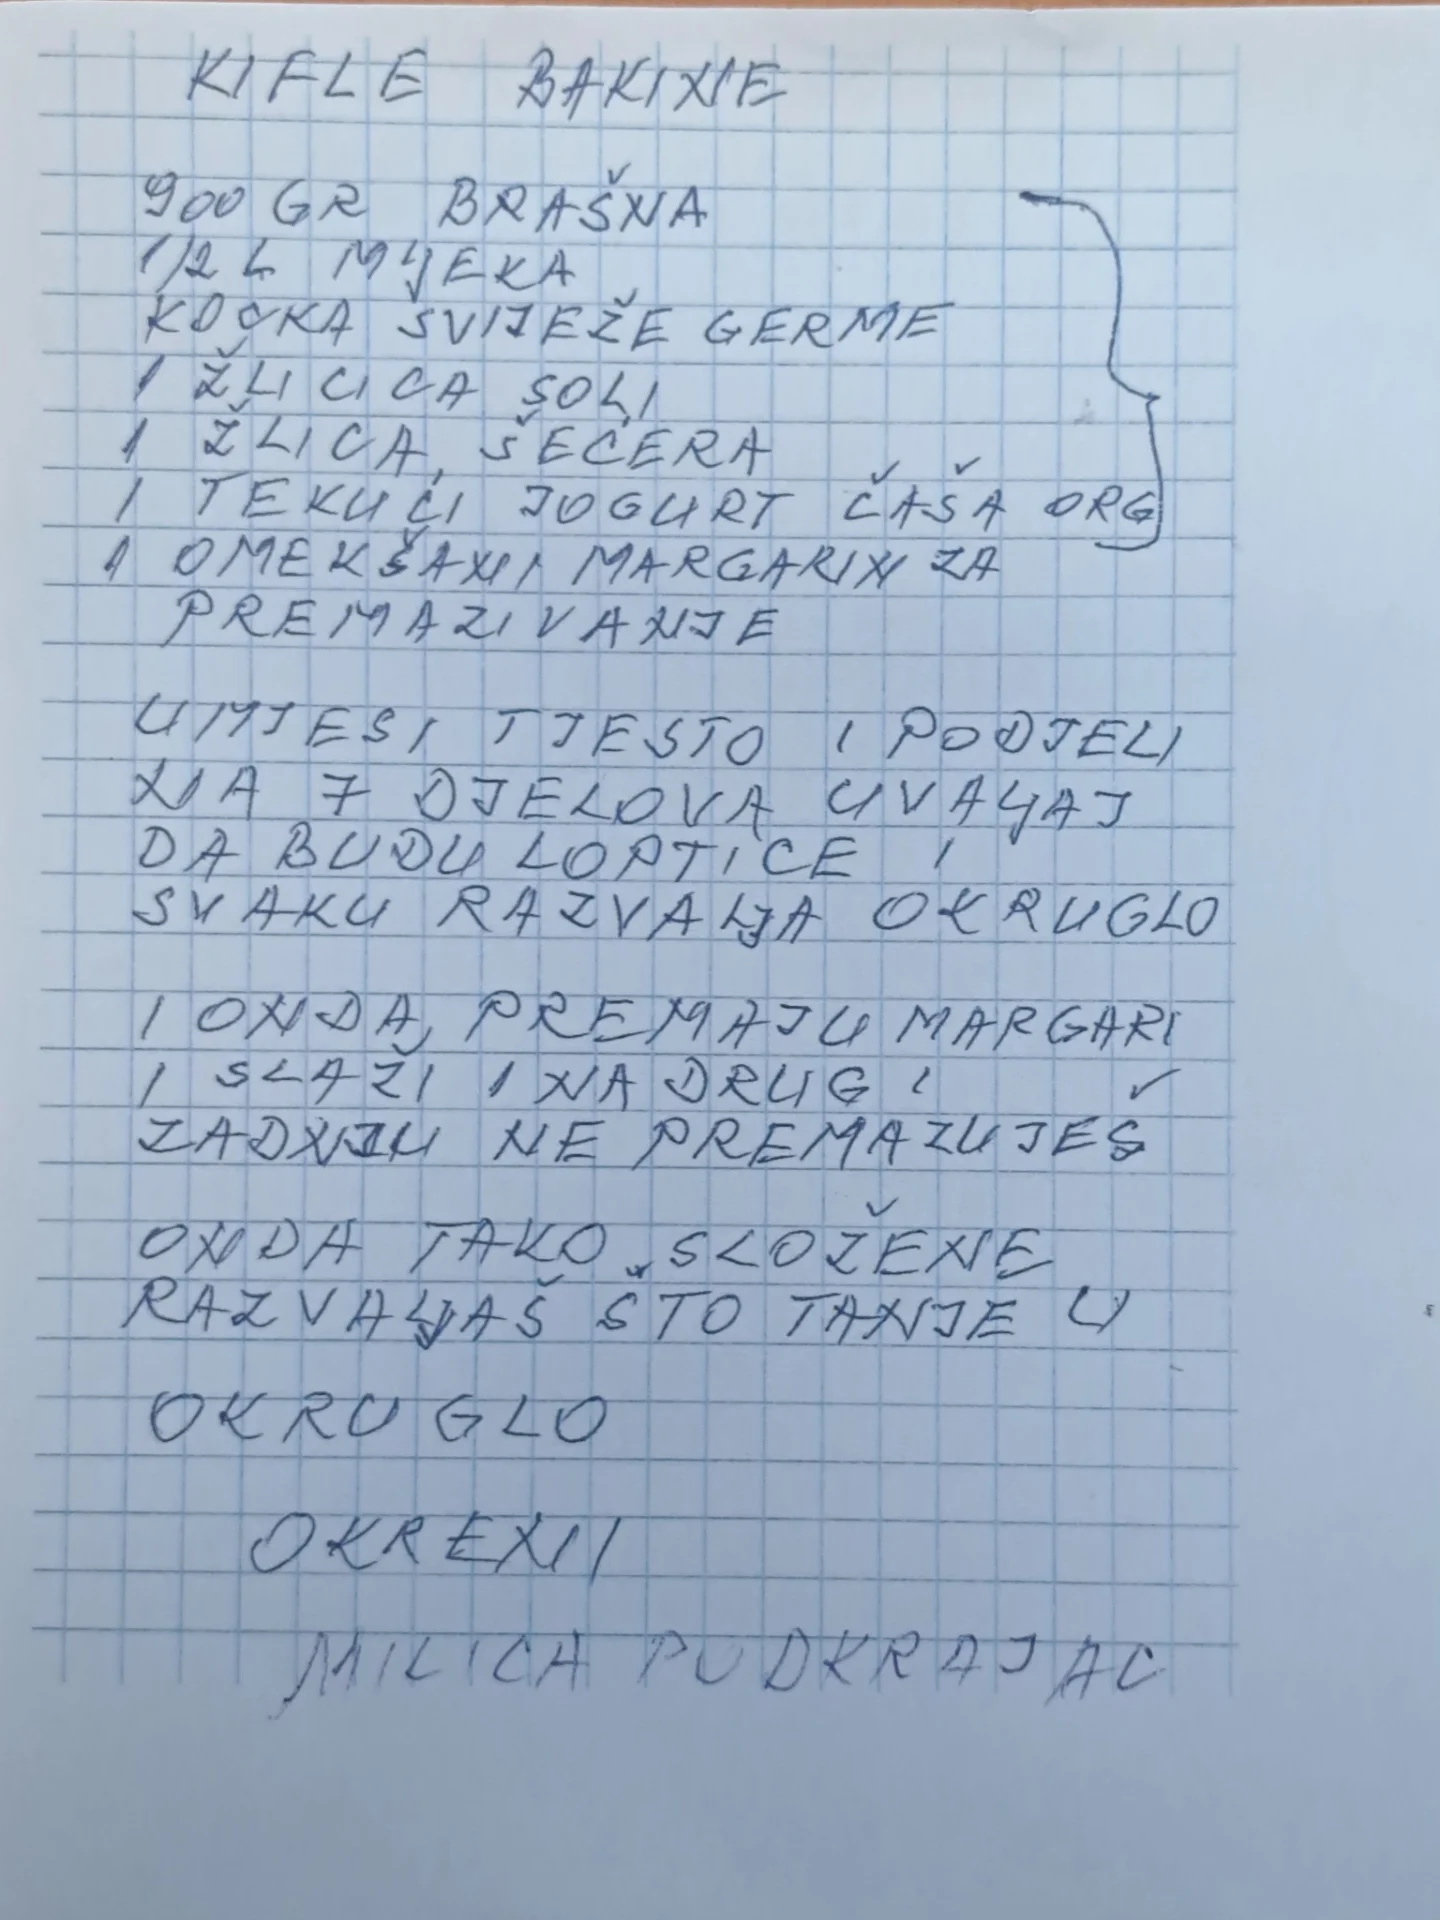 KIFLE BAKINE
900 GR BRAŠNA
1/2 L MLJEKA
KOCKA SVIJEŽE GERME
1 ŽLICICA SOLI
1 ŽLICA, ŠEĆERA
1 TEKUĆI JOGURT ČAŠA ORG
1 OMEKŠANI MARGARIN ZA
PREMAZIVANJE
UMJESI TJESTO I PODJELI
NA 7 DJELOVA UVALJAJ
DA BUDU LOPTICE I
SVAKU RAZVALJA OKRUGLO
I ONDA, PREMAJU MARGARI
I SLAŽI 1 NA DRUG I
ZADNJU NE PREMAZUJEŠ
ONDA TAKO SLOŽENE
RAZVALJAŠ ŠTO TANJE U
OKRUGLO
OKRENI
MILICA PODKRAJAC